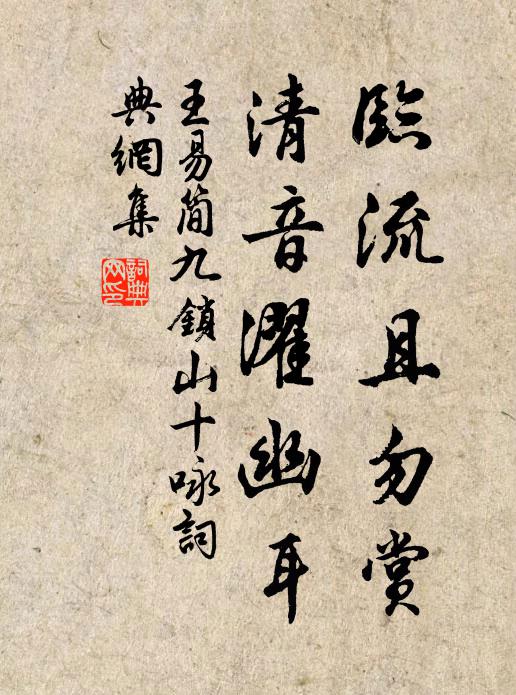 臨流且勿賞
清音濯幽耳
王易简九鎖山十咏詞
典網集
詞典
网印